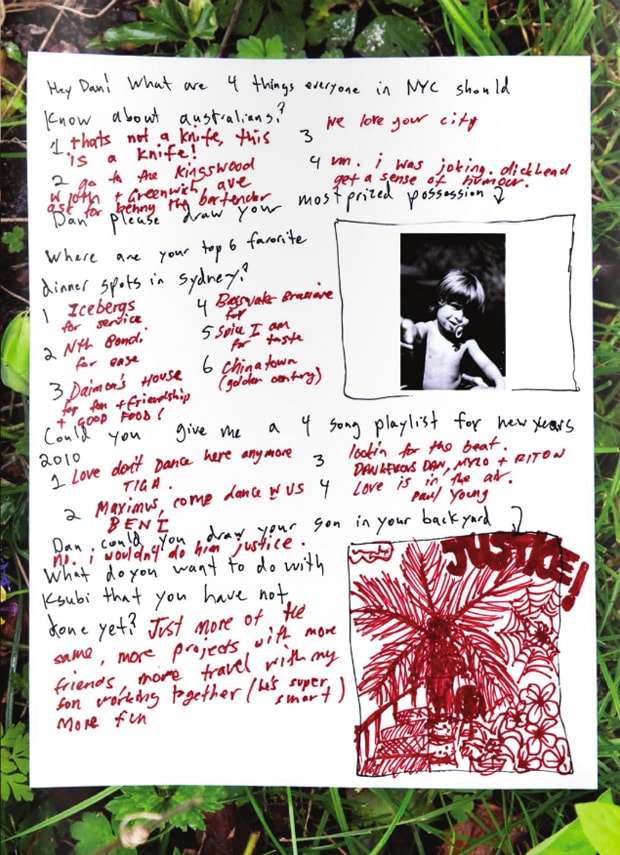 Hey Dan! What are 4 things everyone in NYC should
know about australians?
1 thats not a knife, this
is a knife!
2 go to the Kingswood
W 10th + Greenwich ave
ask for benny the bartender
3 we love your city
4 um. i was joking. dickhead
get a sense of humour.
Dan please draw your most prized possession
Where are your top 6 favorite
dinner spots in Sydney?
1 Icebergs
for service
2 Nth Bondi
for ease
3 Daimon's House
for fun + friendship
+ GOOD FOOD!
4 Brasserie
for
5 Spice I am
for taste
6 Chinatown
(golden century)
Could you give me a 4 song playlist for new years
2010
1 Love don't Dance here anymore
TIGA.
2 Maximus, come dance W US
BENI
3 lookin for the beat.
DANGEROUS DAN, MYLO + RITON
4 Love is in the air.
Paul Young
Dan could you draw your son in your backyard
no. i wouldn't do him justice.
JUSTICE!
What do you want to do with
Ksubi that you have not
done yet? Just more of the
same, more projects with more
friends, more travel with my
son working together (he's super
smart)
more fun